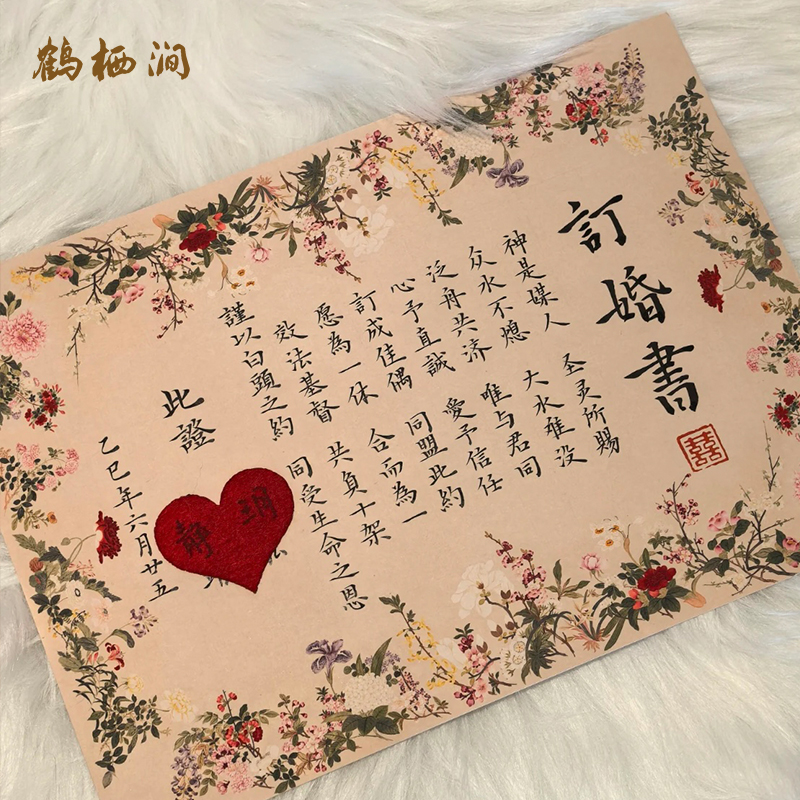 鹤栖涧
訂婚書
囍
神是媒人 圣灵所賜
众水不熄 大水难没
泛舟共济 唯与君同
心予直誠 愛予信任
訂成佳偶 同盟此約
愿為一体 合而為一
效法基督 共负十架
謹以白頭之約 同受生命之恩
此證
静
乙巳年六月廿五